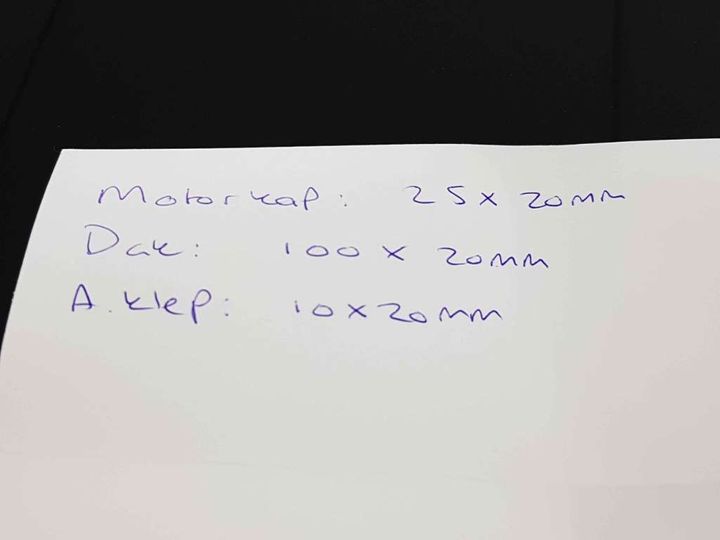 Motorkap: 25 x 20mm
Dak: 100 x 20mm
A.klep: 10 x 20mm